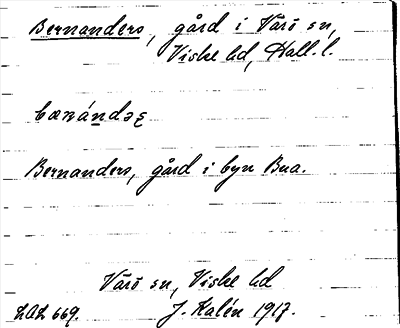 Bernanders, gård i Värö sn,
Viske hd, Hall. l.
bærnándəʂ
Bernanders, gård i byn Bua.
Värö sn, Viske hd
LAL 669. J. Kalén 1917.